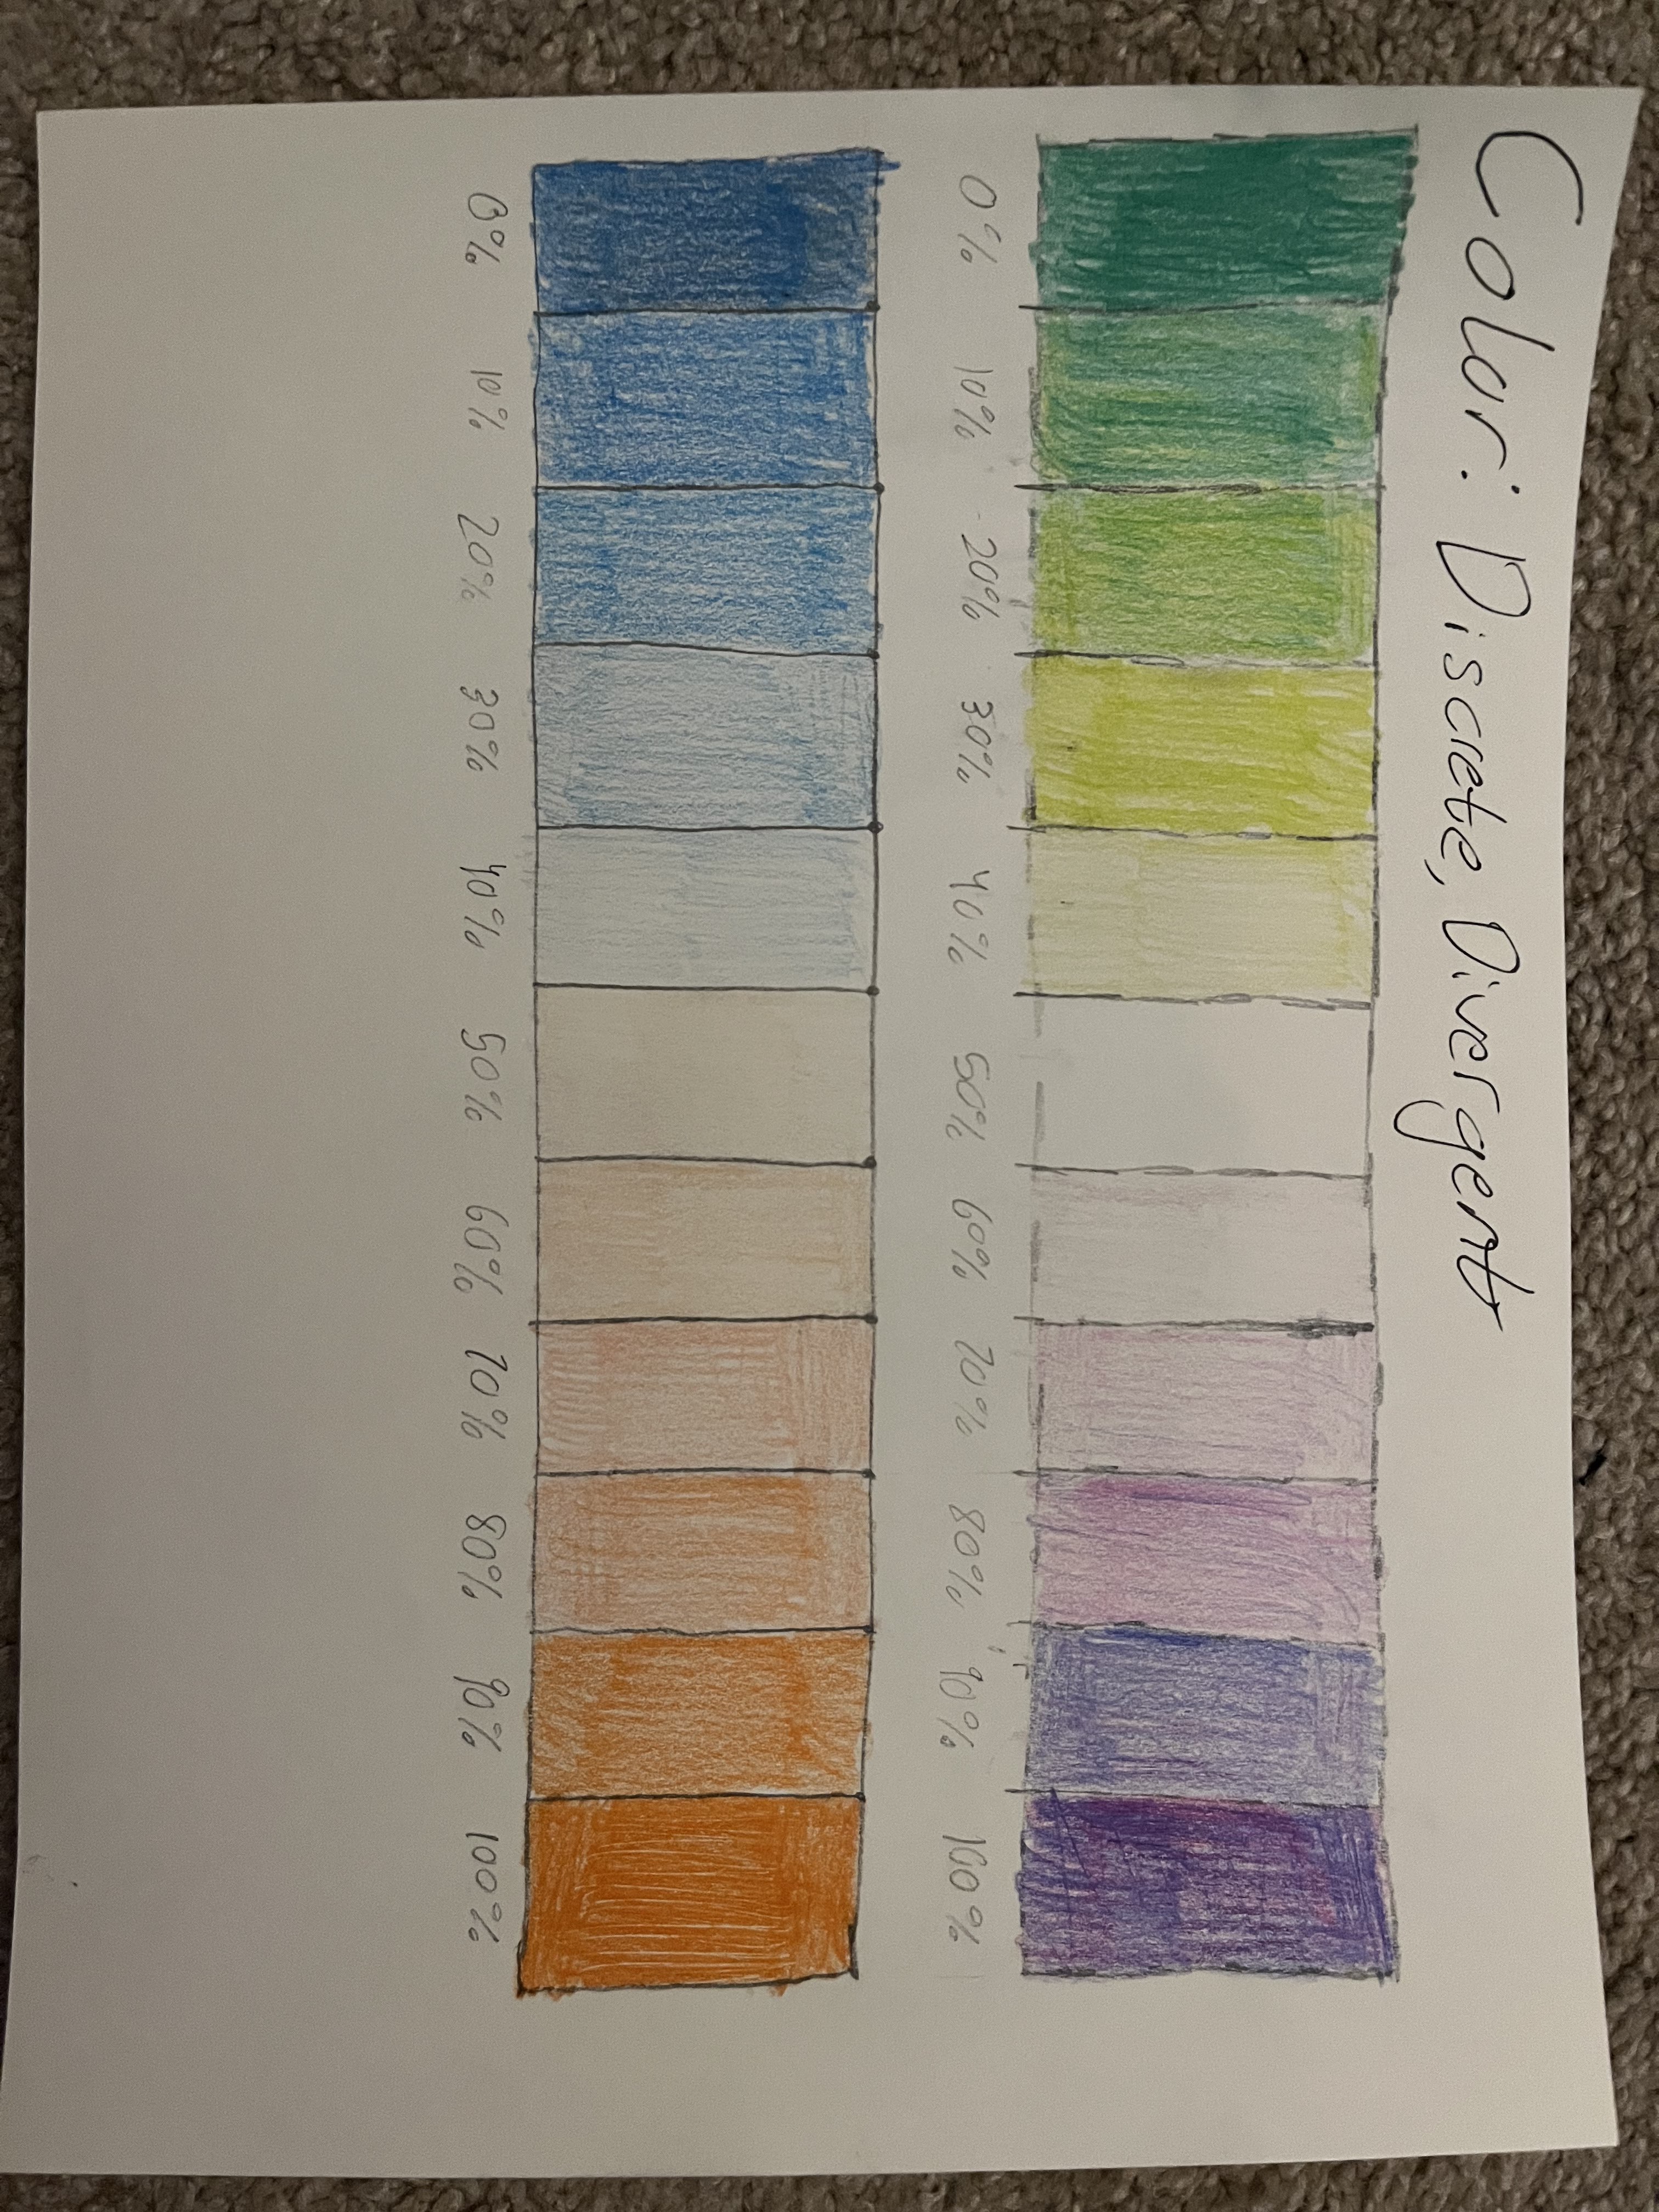 Color: Discrete, Divergent
0% 10% 20% 30% 40% 50% 60% 70% 80% 90% 100%
0% 10% 20% 30% 40% 50% 60% 70% 80% 90% 100%